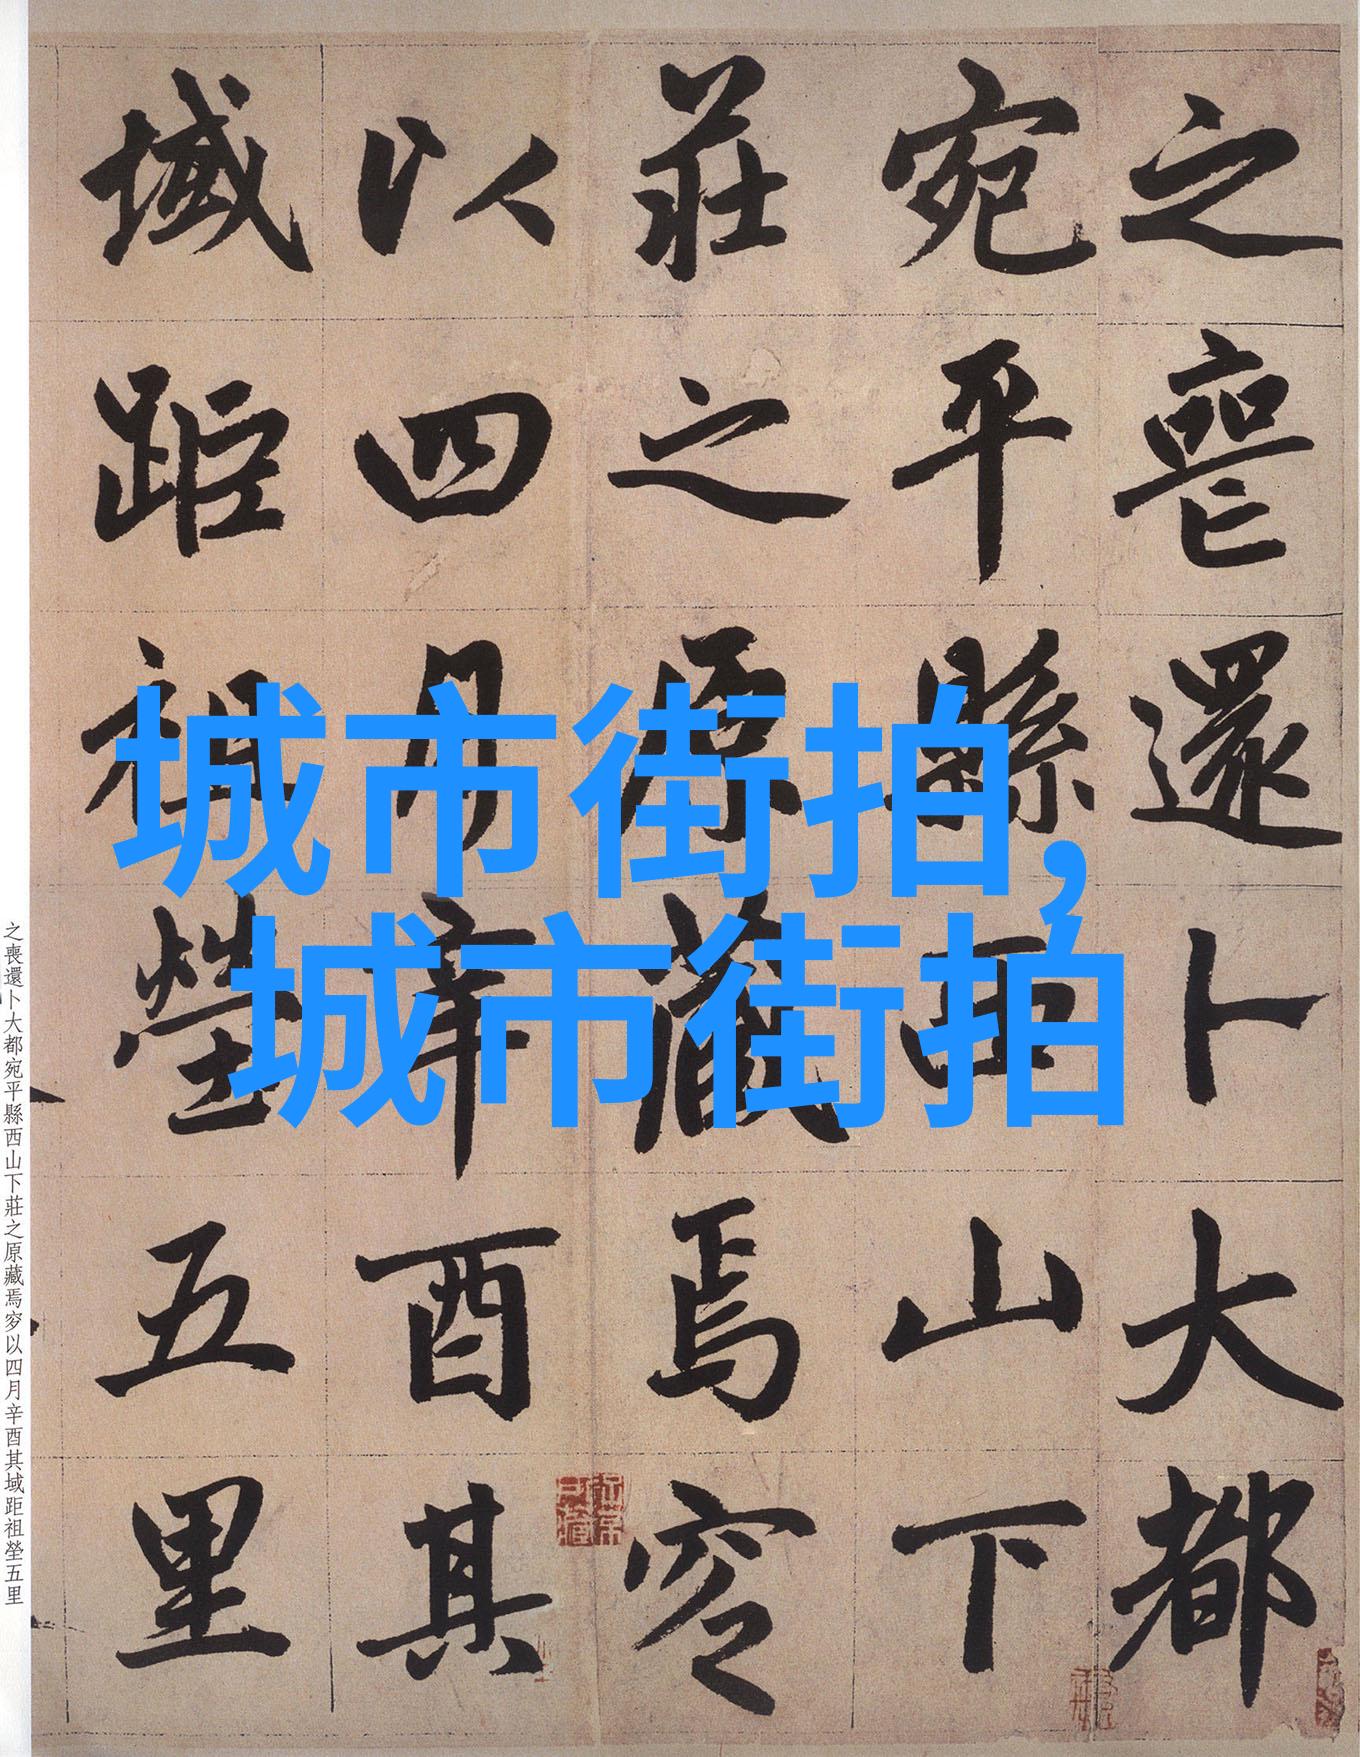 之喪還卜大都
宛平縣西山下
莊之原藏焉窆
以四月辛酉其
域距祖塋五里
城市街拍,
城市街拍
之喪還卜大都宛平縣西山下莊之原藏焉窆以四月辛酉其域距祖塋五里